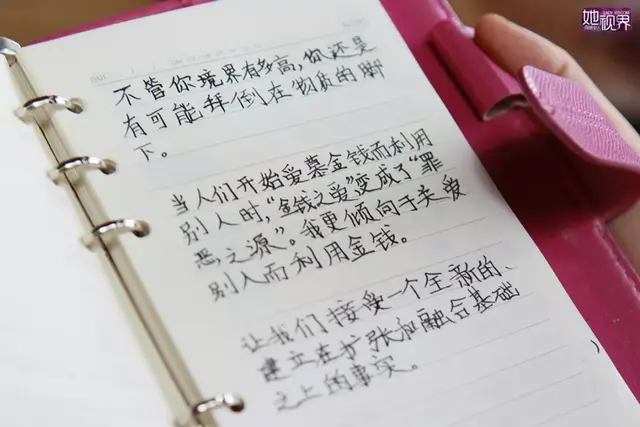 她视界
不管你境界有多高，你还是
有可能拜倒在物质的脚
下。
当人们开始爱慕金钱而利用
别人时，“金钱之爱”变成了“罪
恶之源”。我更倾向于关爱
别人而利用金钱。
让我们接受一个全新的、
建立在扩张和融合基础
之上的事实。